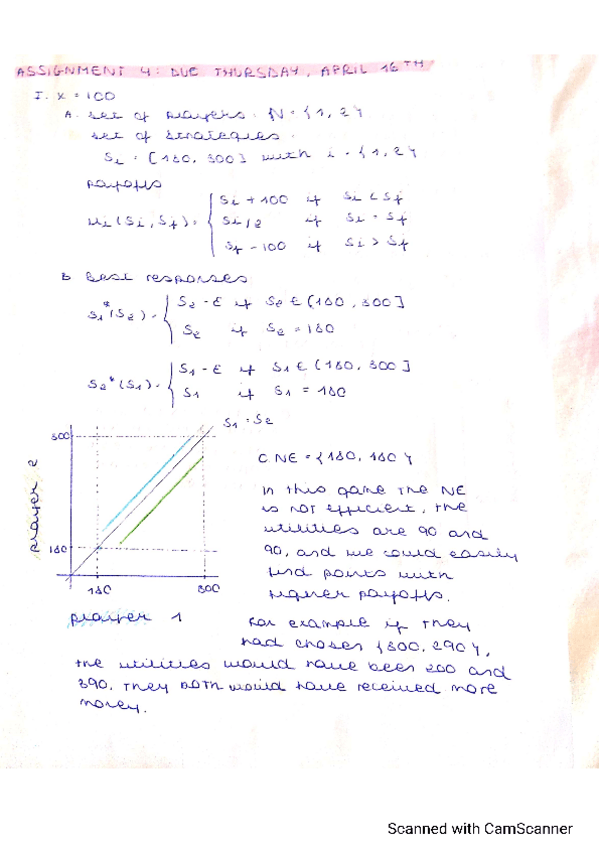 ASSIGNMENT 4: DUE THURSDAY, APRIL 16TH
I. X = 100
A. set of players: N = {1, 2}
set of strategies:
Si = [180, 300] with i = {1, 2}
payoffs
ui (Si, Sj) = { Si + 100 if Si < Sj
Si/2 if Si = Sj
Sj - 100 if Si > Sj
B Best responses
S1*(S2) = { S2 - ε if S2 ∈ (180, 300]
S2 if S2 = 180
S2*(S1) = { S1 - ε if S1 ∈ (180, 300]
S1 if S1 = 180
S1 = S2
300
player 2
180
180 300
player 1
C. NE = {180, 180}
In this game the NE
is not efficient, the
utilities are 90 and
90, and we could easily
find points with
higher payoffs.
For example if they
had chosen {300, 290},
the utilities would have been 200 and
390. They both would have received more
money.
Scanned with CamScanner